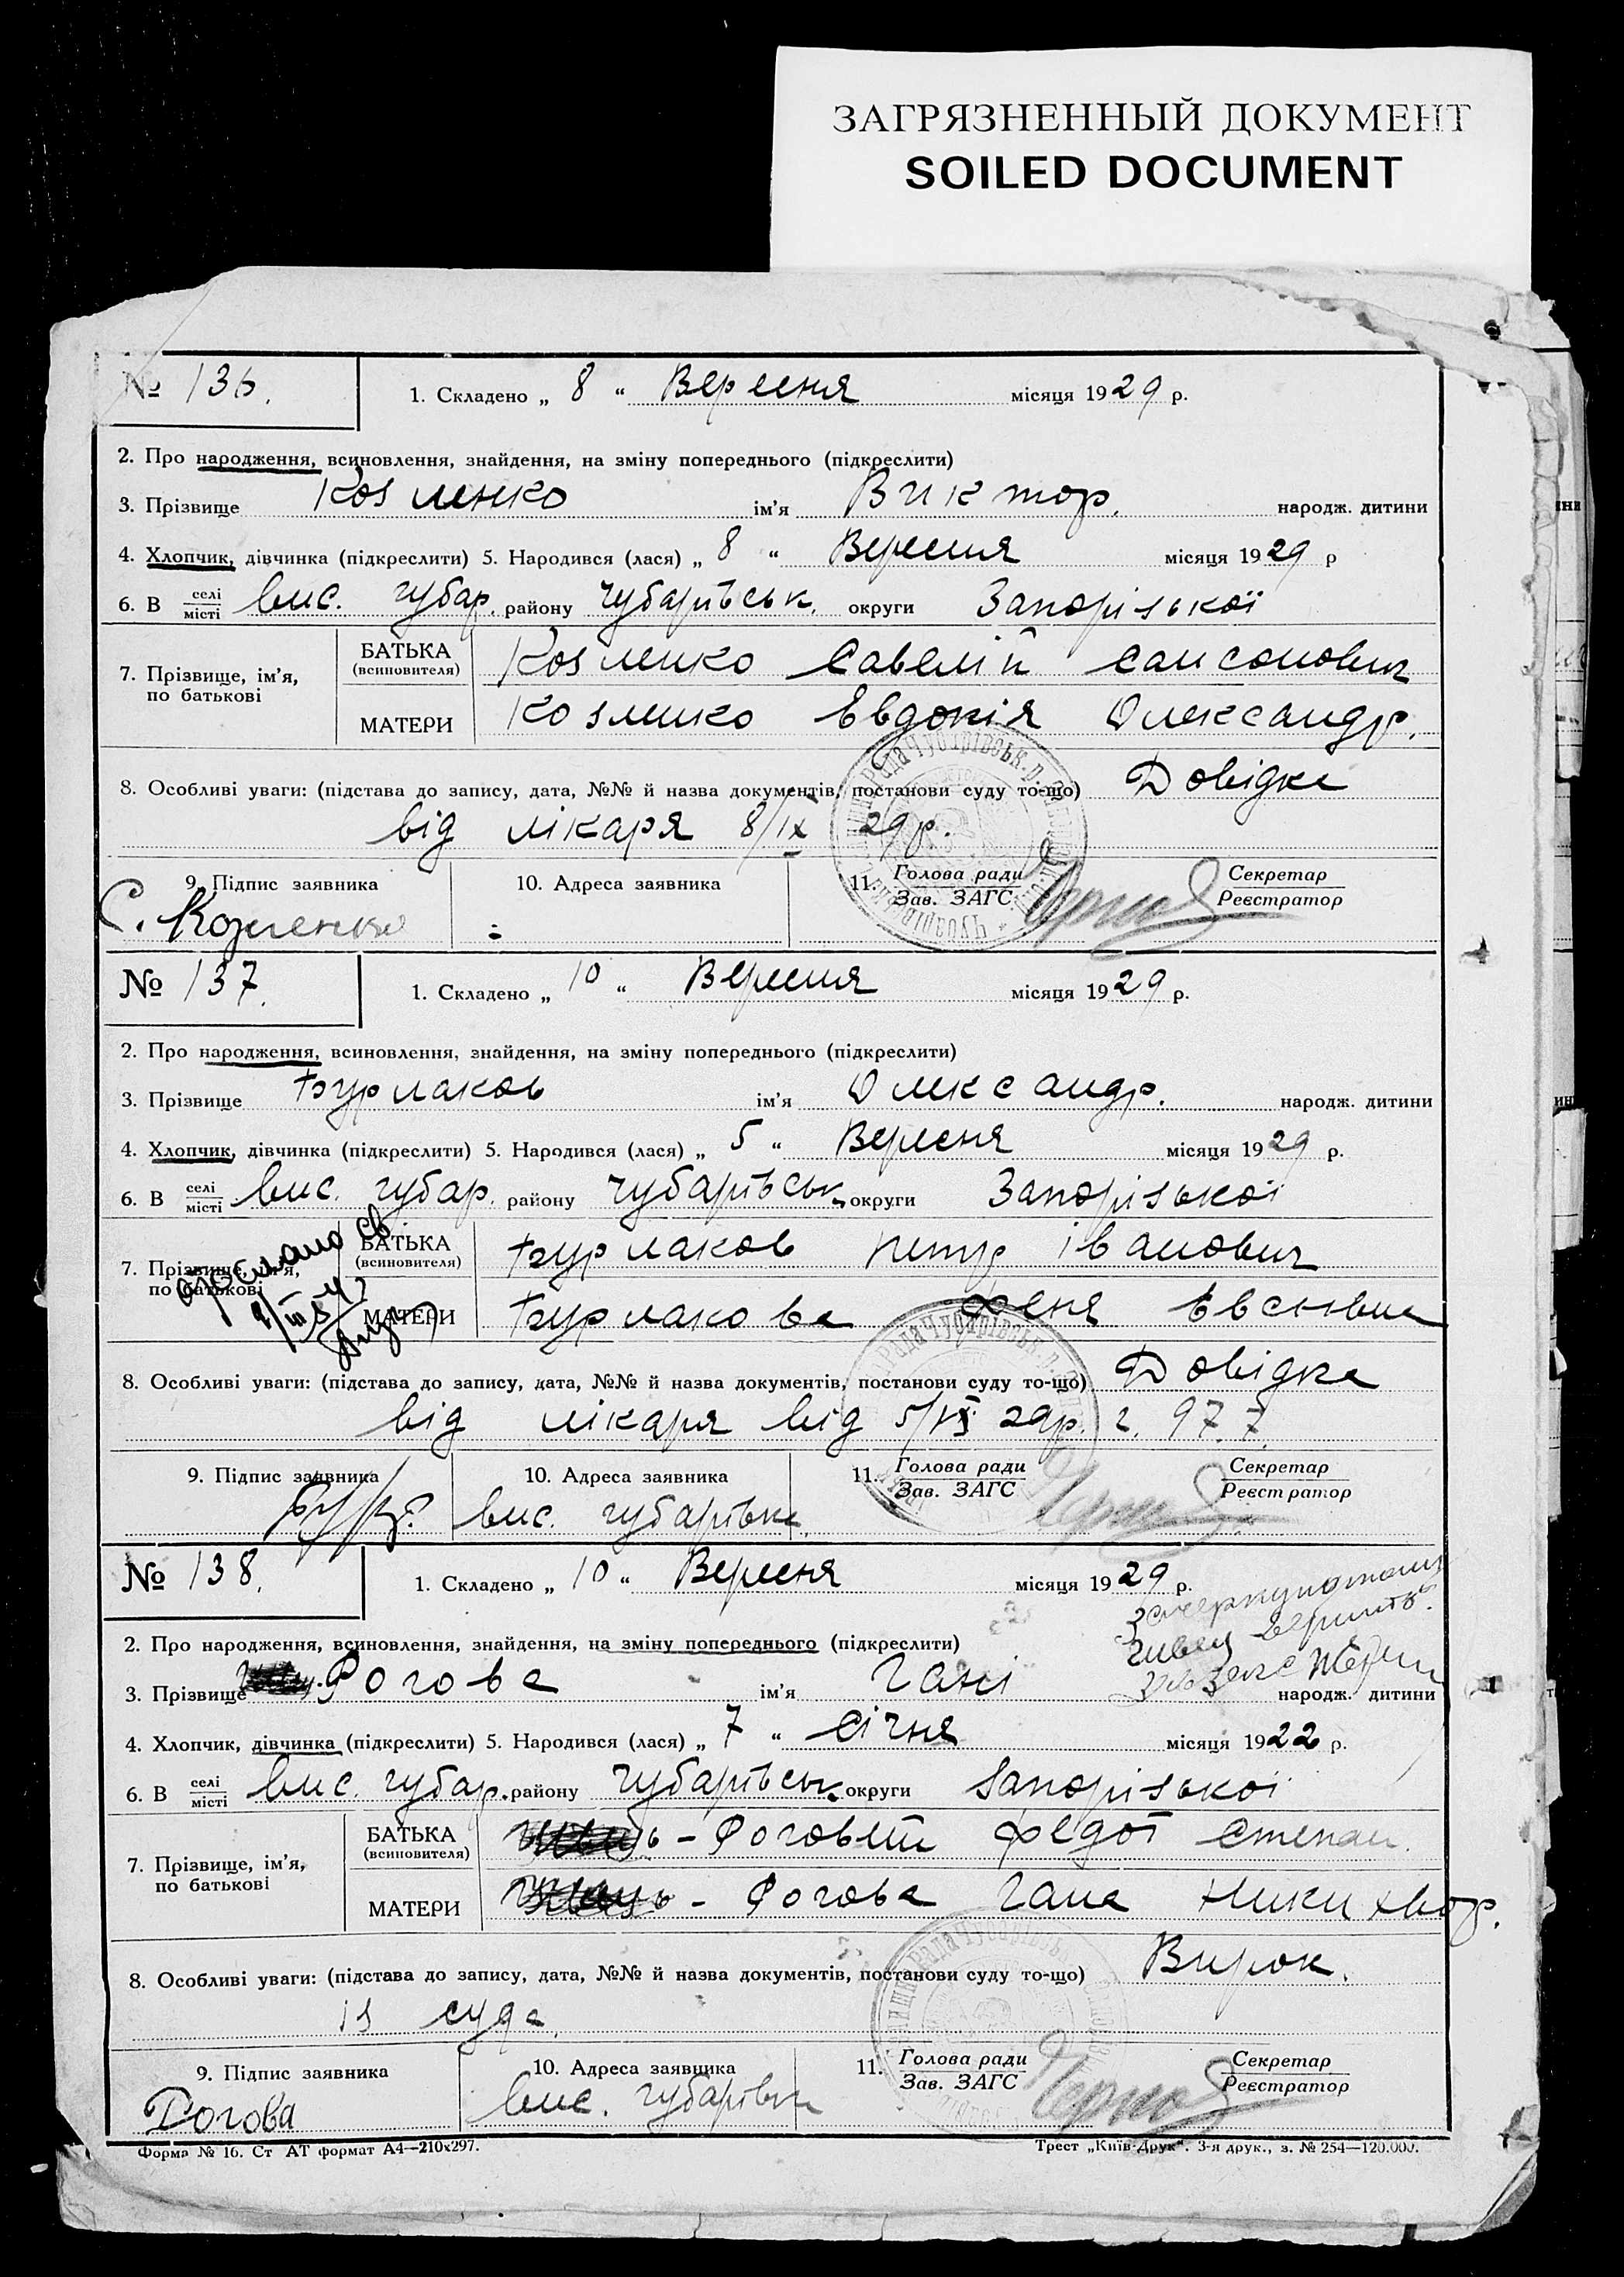 ЗАГРЯЗНЕННЫЙ ДОКУМЕНТ
SOILED DOCUMENT
№ 136. 1. Складено „ 8 “ Вересня місяця 1929 р.
2. Про народження, всиновлення, знайдення, на зміну попереднього (підкреслити)
3. Прізвище Козленко ім’я Виктор. народж. дитини
4. Хлопчик, дівчинка (підкреслити) 5. Народився (лася) „ 8 “ Вересня місяця 1929 р
6. В селі місті вис. Чубар. району Чубарівськ. округи Запорізької
7. Прізвище, ім’я, по батькові
БАТЬКА (всиновителя) Козленко Савелій Самсонович
МАТЕРИ Козленко Евдокія Олександр.
8. Особливі уваги: (підстава до запису, дата, №№ й назва документів, постанови суду то-що) Довідка
від лікаря 8/IX 29 р.
9. Підпис заявника 10. Адреса заявника 11. Голова ради Зав. ЗАГС Секретар Реєстратор
С. Козленко
№ 137. 1. Складено „ 10 “ Вересня місяця 1929 р.
2. Про народження, всиновлення, знайдення, на зміну попереднього (підкреслити)
3. Прізвище Бурлаков ім’я Олександр. народж. дитини
4. Хлопчик, дівчинка (підкреслити) 5. Народився (лася) „ 5 “ Вересня місяця 1929 р.
6. В селі місті вис. Чубар. району Чубарівськ округи Запорізької
7. Прізвище, ім’я, по батькові
БАТЬКА (всиновителя) Бурлаков Петр Іванович
МАТЕРИ Бурлакова Феня
8. Особливі уваги: (підстава до запису, дата, №№ й назва документів, постанови суду то-що) Довідка
від лікаря від 5/IX 29р.
9. Підпис заявника 10. Адреса заявника 11. Голова ради Зав. ЗАГС Секретар Реєстратор
вис. Чубарівка
№ 138. 1. Складено „ 10 “ Вересня місяця 1929 р.
2. Про народження, всиновлення, знайдення, на зміну попереднього (підкреслити)
3. Прізвище Рогова ім’я Гані народж. дитини
4. Хлопчик, дівчинка (підкреслити) 5. Народився (лася) „ 7 “ Січня місяця 1922 р.
6. В селі місті вис. Чубар. району Чубарівськ округи Запорізької
7. Прізвище, ім’я, по батькові
БАТЬКА (всиновителя) - Роговий Федот Степан.
МАТЕРИ - Рогова Гана Никихвор.
8. Особливі уваги: (підстава до запису, дата, №№ й назва документів, постанови суду то-що) Вирок.
із суда.
9. Підпис заявника 10. Адреса заявника 11. Голова ради Зав. ЗАГС Секретар Реєстратор
Рогова вис. Чубарівка
Форма № 16. Ст АТ формат А4—210х297. Трест „Київ-Друк“. 3-я друк., з. № 254—120.000.